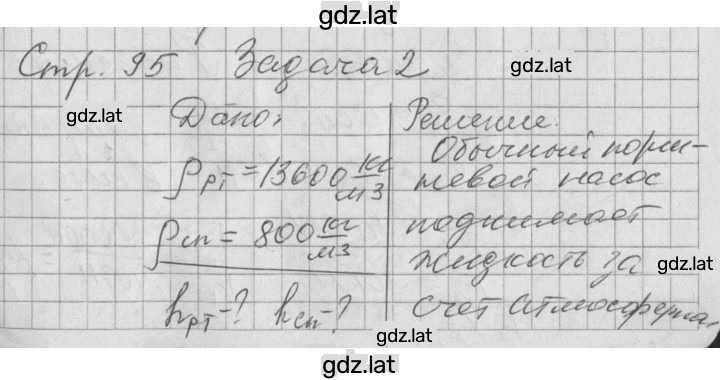 gdz.lat
Стр. 95 Задача 2
gdz.lat
gdz.lat
Дано:
ρрт = 13600 кг/м3
ρсп = 800 кг/м3
hрт-? hсп-?
Решение.
Обычный порш-
невой насос
поднимает
жидкость за
gdz.lat
счет атмосферна
gdz.lat
gdz.lat